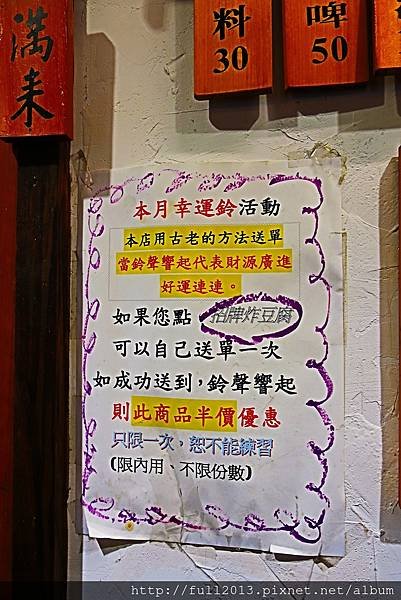 滿
來
料
30
啤
50
本月幸運鈴活動
本店用古老的方法送單
當鈴聲響起代表財源廣進
好運連連。
如果您點 招牌炸豆腐
可以自己送單一次
如成功送到，鈴聲響起
則此商品半價優惠
只限一次，恕不能練習
(限內用、不限份數)
http://full2013.pixnet.net/album